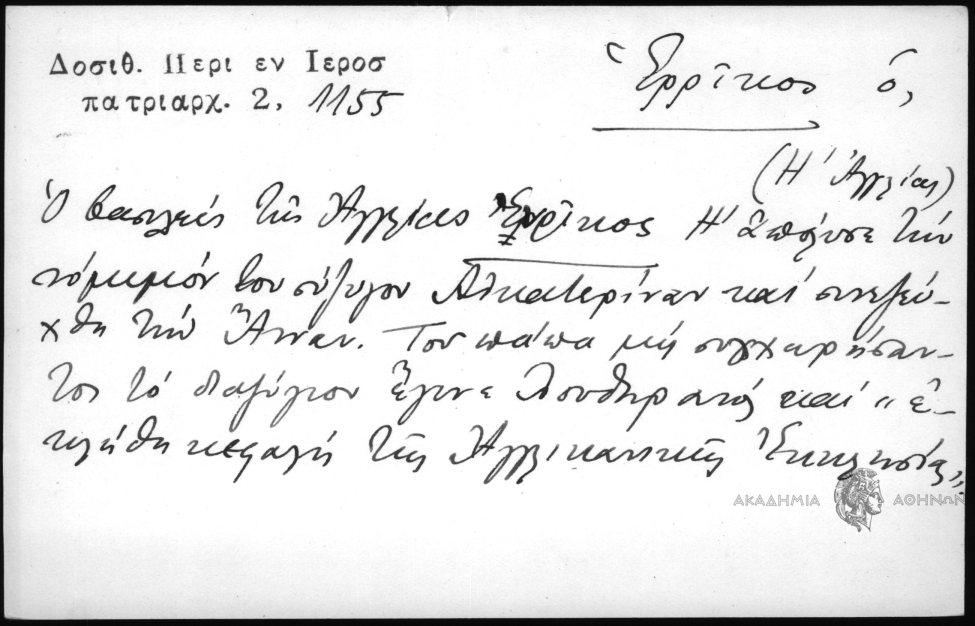 Δοσιθ. Περι εν Ιεροσ
πατριαρχ. 2, 1155
Ἑρρῖκος ὁ,
(Η' Ἀγγλίας)
Ὁ βασιλεύς τῆς Ἀγγλίας Ἑρρῖκος Η' ἀπέλυσε τήν
νόμιμόν του σύζυγον Αἰκατερίναν καί συνεζεύ-
χθη τήν Ἄνναν. Τοῦ πάπα μή συγχωρήσαν-
τος τό διαζύγιον ἔγινε Λουθηρανός καί „ἐ-
κλήθη κεφαλή τῆς Ἀγγλικανικῆς Ἐκκλησίας„
ΑΚΑΔΗΜΙΑ ΑΘΗΝΩΝ